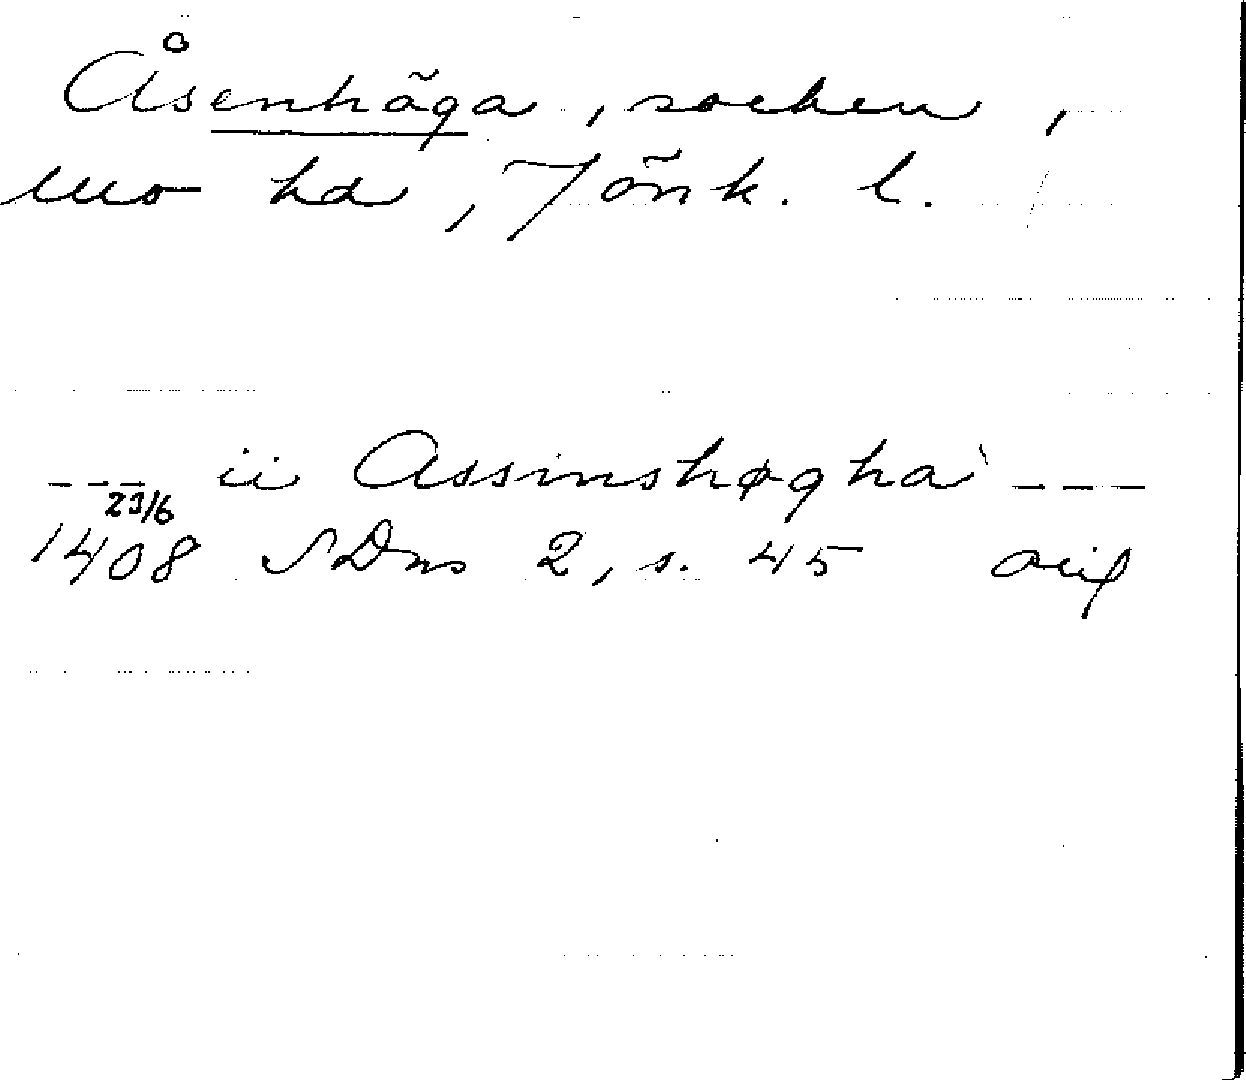 Åsenhöga, socken,
Mo hd, Jönk. l.
--- ii Assinshøgha ---
23/6
1408 SDns 2, s. 45 avs